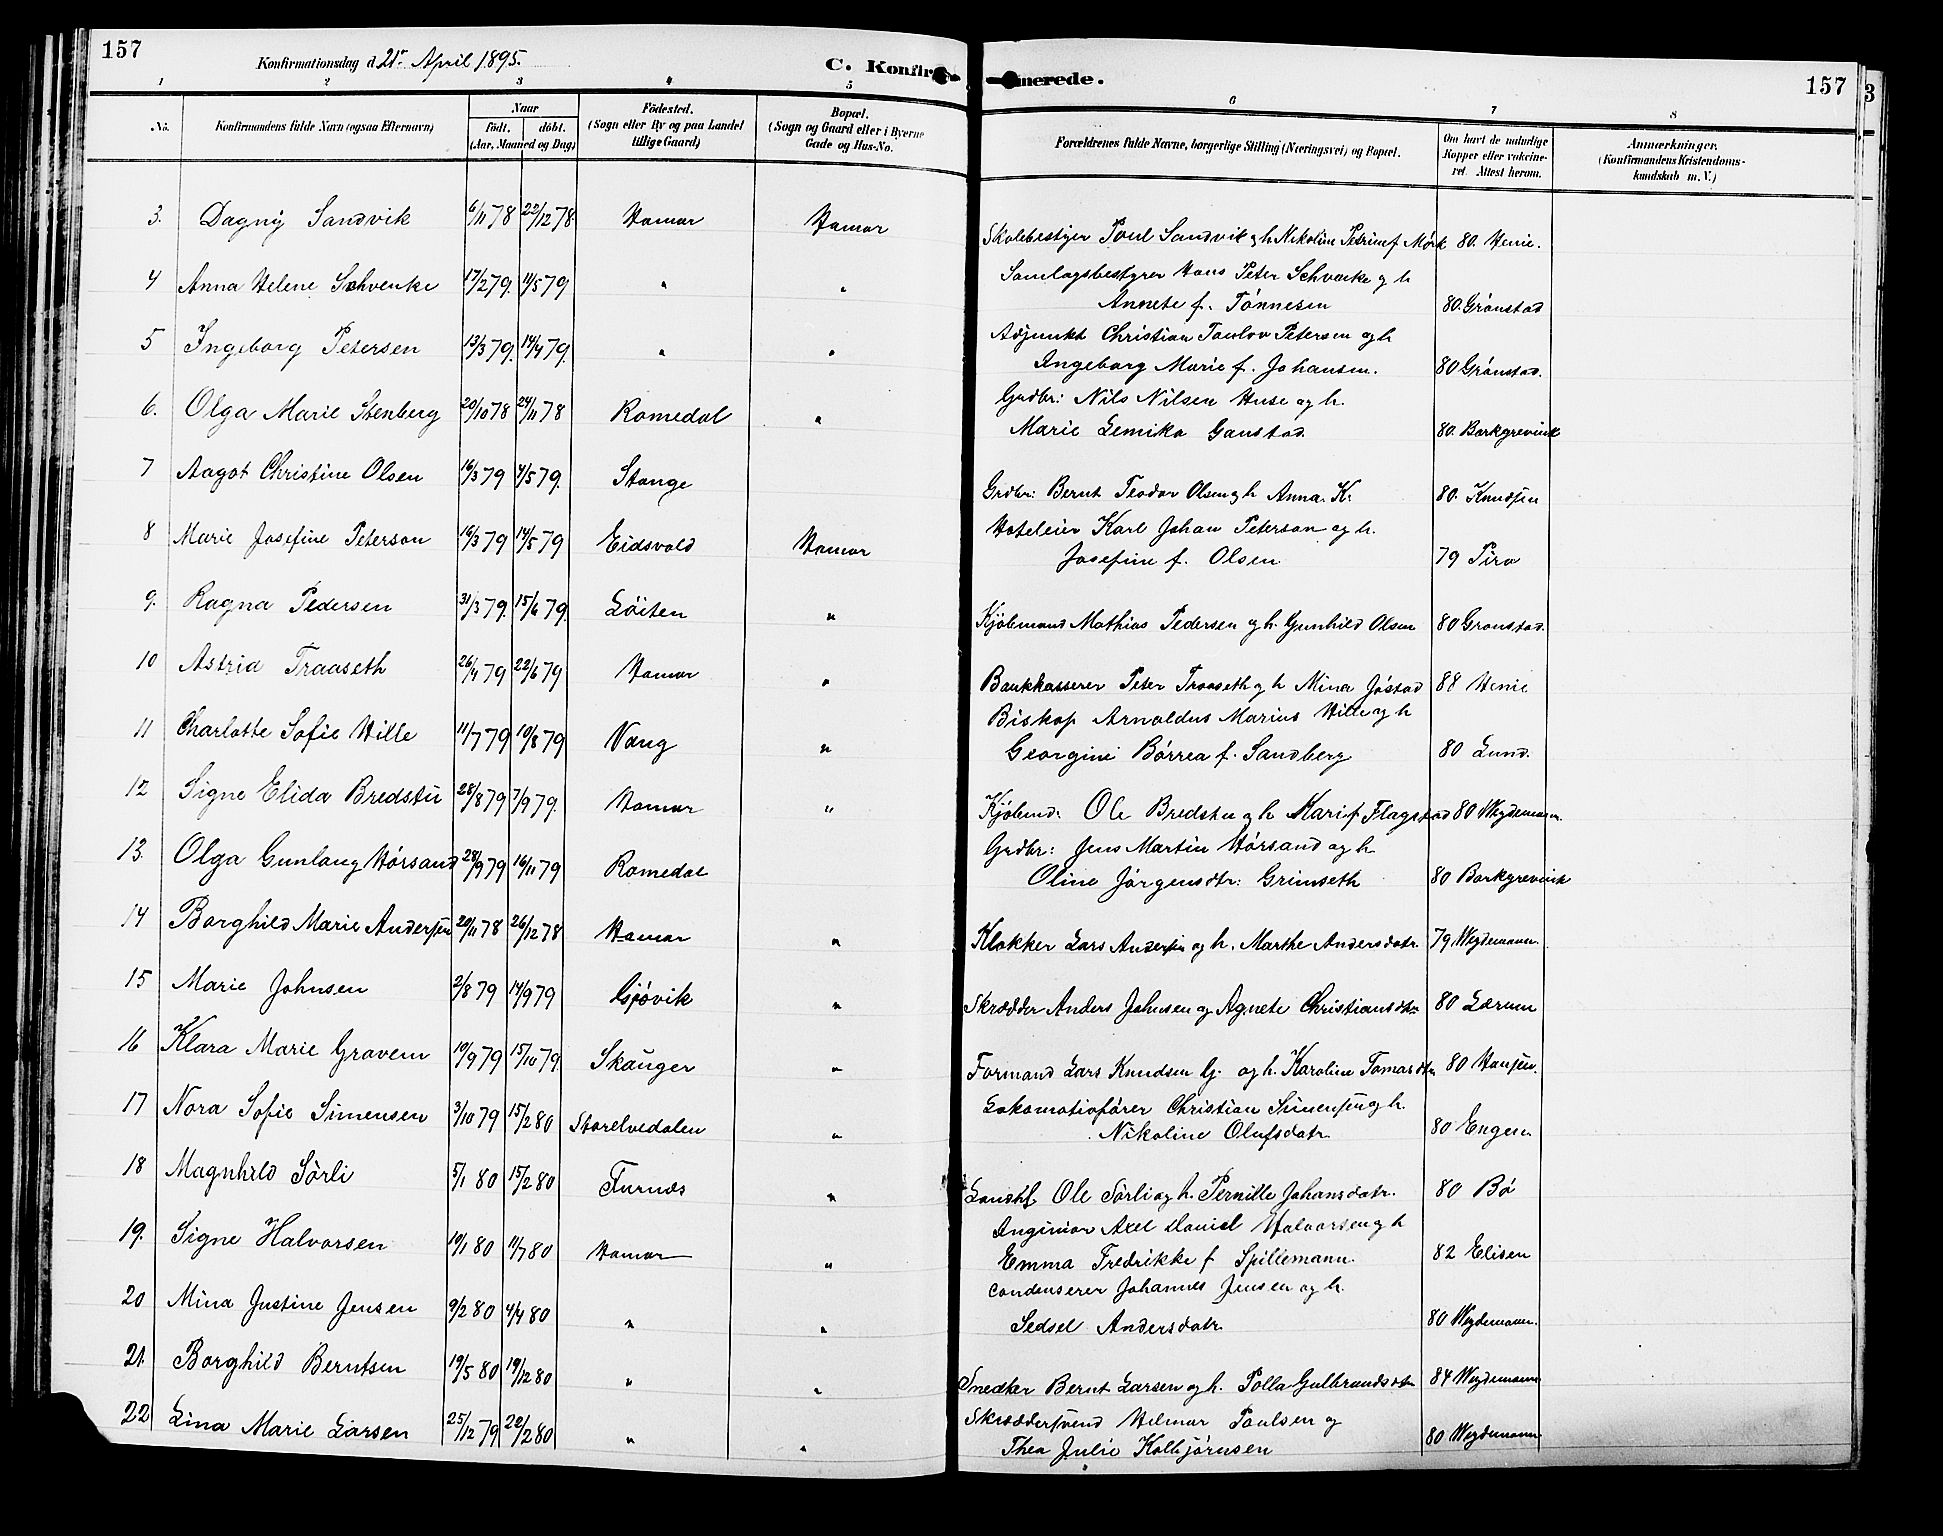 157
Konfirmationsdag d 21de April 1895.
C. Konfirmerede.
157
1 2 3 4 5 6 7 8
No. Konfirmandens fulde Navn (ogsaa Efternavn) Naar födt. döbt. (Aar, Maaned og Dag) Födested. (Sogn eller By og paa Landet tillige Gaard) Bopæl. (Sogn og Gaard eller i Byerne Gade og Hus-No. Forældrenes fulde Navne, borgerlige Stilling (Næringsvei) og Bopæl. Om havt de naturlige Kopper eller vakcineret. Attest herom. Anmærkninger. (Konfirmandens Kristendomskundskab m. V.)
3. Dagny Sandvik 6/11 78 22/12 78 Hamar Hamar Skolebestyer Poul Sandvik og h. Nikoline Petrine f. Mørk 80. Henie.
4 Anna Helene Schvenke 17/2 79. 11/5 79 " " Samlagsbestyrer Hans Peter Schvenke og h
Annete f. Tönnesen 80. Grönstad
5 Ingeborg Petersen 13/3 79. 14/4 79. " " Adjunkt Christian Toulov Petersen og h
Ingeborg Marie f. Johansen. 80 Grönstad.
6. Olga Marie Stenberg 20/10 78 24/11 78 Romedal " Grdbr: Nils Nilsen Huse og h.
Marie Lemika Ganstad. 80. Barkgrevink
7 Aagot Christine Olsen 16/3 79 4/5 79. Stange Grdbr: Bernt Teodor Olsen og h Anna. K. 80. Knudsen
8 Marie Josefine Peterson 16/3 79 14/5 79 Eidsvold Hamar Hoteleier Karl Johan Peterson og h.
Josefine f. Olsen 79 Piro
9. Ragna Pedersen 31/3 79. 15/6 79. Löiten " Kjöbmand Mathias Pedersen og h. Gunhild Olsen 80 Gronstad.
10 Astrid Traaseth 26/4 79 22/6 79 Hamar " Bankkasserer Peter Traaseth og h Mina Jöstad 88 Henie
11 Charlotte Sofie Hille 11/7 79 10/8 79 Vang " Biskop Arnoldus Marius Hille og h
Georgine Børrea f. Sandberg 80 Lund.
12 Signe Elida Bredstu 28/8 79 7/9 79. Hamar " Kjöbmd: Ole Bredstu og h Mari f Flagstad 80 Weydemann.
13. Olga Gunlaug Hörsand 28/9 79 16/11 79 Romedal Grdbr: Jens Martin Hörsand og h
Oline Jörgensdtr: Grimseth 80 Barkgrevink
14 Borghild Marie Andersen 20/11 78 26/12 78 Hamar " Klokker Lars Andersen og h. Marthe Andersdatr. 79 Weydemann.
15 Marie Johnsen 2/8 79 14/9 79 Gjövik " Skrædder Anders Johnsen og Agnete Christiansdtr 80 Lærum
16 Klara Marie Gravem 10/9 79 15/10 79. Skauger " Formand Lars Knudsen G. og h. Karoline Tomasdtr 80 Hansen.
17 Nora Sofie Simensen 3/10 79 15/2 80 Storelvedalen " Lokomotivförer Christian Simensen og h.
Nikoline Olufsdatr. 80 Engen
18 Magnhild Sörli 5/1 80 15/2 80 Furnæs " Landhl Ole Sörli og h. Pernille Johansdatr. 80 Bö
19. Signe Halvorsen 19/1 80 11/7 80 Hamar " Inginiör Axel Daniel Halvorsen og h
Emma Fredrikke f Spillemann. 82 Elisen
20 Mina Justine Jensen 9/2 80 4/4 80 " " Condenserer Johannes Jensen og h.
Sedsel Andersdatr. 80 Weydemann.
21. Borghild Berntsen 19/5 80 19/12 80 " " Snedker Bernt Larsen og h. Polla Gulbrandsdtr 84 Weydemann
22 Lina Marie Larsen 25/12 79 22/2 80 " " Skræddersvend Helmar Poulsen og
Thea Julie Kolbjörnsen 80 Weydemann